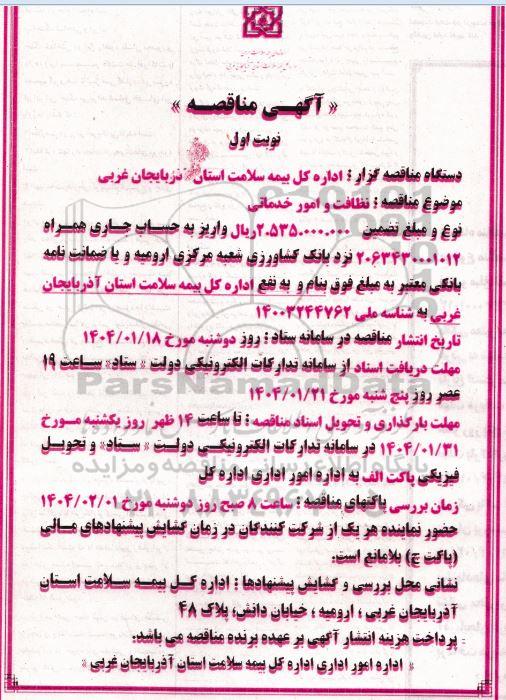 « آگهی مناقصه »
نوبت اول
دستگاه مناقصه گزار : اداره کل بیمه سلامت استان آذربایجان غربی
موضوع مناقصه : نظافت و امور خدماتی
نوع و مبلغ تضمین ۲.۵۳۵.۰۰۰.۰۰۰ریال واریز به حساب جاری همراه
۲۰۶۳۴۳۰۰۱۰۱۲ نزد بانک کشاورزی شعبه مرکزی ارومیه و یا ضمانت نامه
بانکی معتبر به مبلغ فوق بنام و به نفع اداره کل بیمه سلامت استان آذربایجان
غربی به شناسه ملی ۱۴۰۰۳۲۴۴۷۶۲
تاریخ انتشار مناقصه در سامانه ستاد : روز دوشنبه مورخ ۱۴۰۴/۰۱/۱۸
مهلت دریافت اسناد از سامانه تدارکات الکترونیکی دولت « ستاد» ساعت ۱۹
عصر روز پنج شنبه مورخ ۱۴۰۴/۰۱/۲۱
مهلت بارگذاری و تحویل اسناد مناقصه : تا ساعت ۱۴ ظهر روز یکشنبه مورخ
۱۴۰۴/۰۱/۳۱ در سامانه تدارکات الکترونیکی دولت « ستاد» و تحویل
فیزیکی پاکت الف به اداره امور اداری اداره کل
زمان بررسی پاکتهای مناقصه : ساعت ۸ صبح روز دوشنبه مورخ ۱۴۰۴/۰۲/۰۱
حضور نماینده هر یک از شرکت کنندگان در زمان گشایش پیشنهادهای مالی
(پاکت ج) بلامانع است.
نشانی محل بررسی و گشایش پیشنهادها : اداره کل بیمه سلامت استان
آذربایجان غربی ، ارومیه ، خیابان دانش، پلاک ۴۸
پرداخت هزینه انتشار آگهی بر عهده برنده مناقصه می باشد.
« اداره امور اداری اداره کل بیمه سلامت استان آذربایجان غربی »
ParsNamadData
پایگاه اطلاع رسانی مناقصه و مزایده